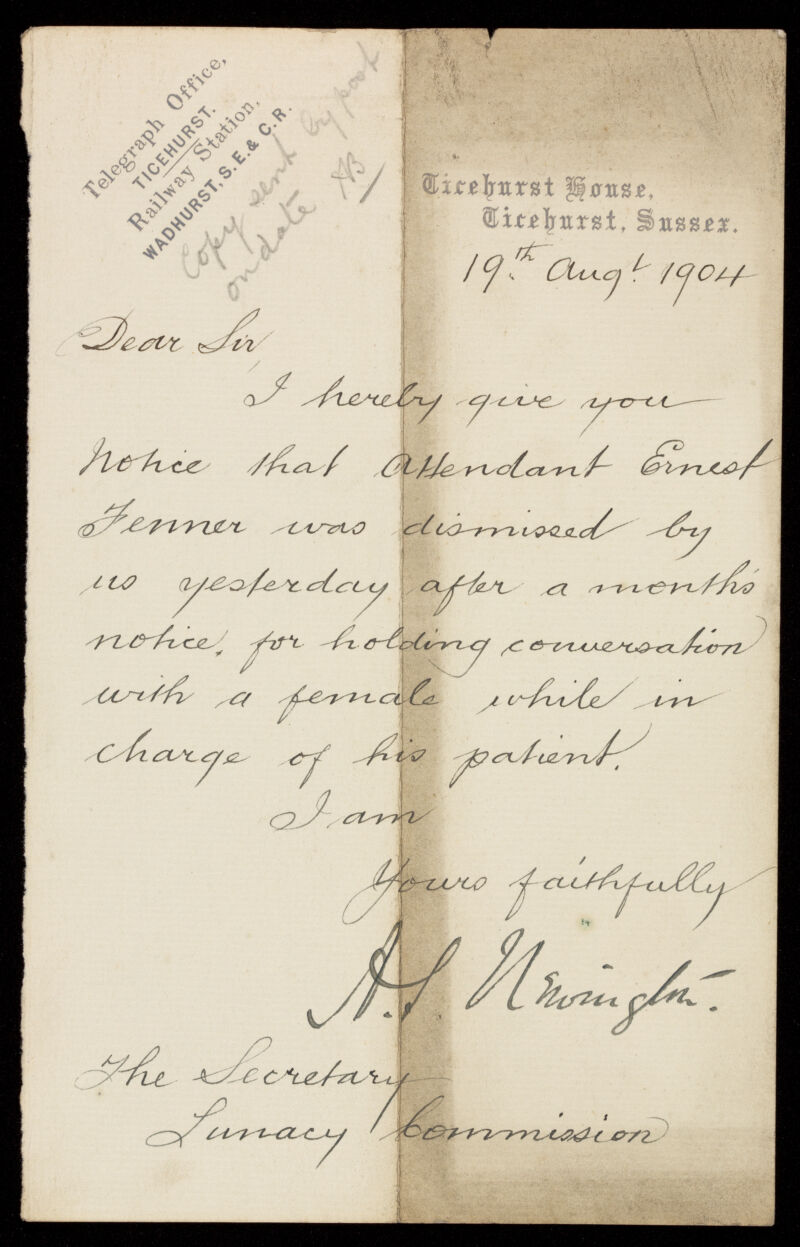 Telegraph Office,
TICEHURST.
Railway Station,
WADHURST, S.E. & C.R.
Copy sent by post
on date AB
Ticehurst House,
Ticehurst, Sussex.
19th Augt. 1904
Dear Sir,
I hereby give you
Notice that Attendant Ernest
Fenner was dismissed by
us yesterday after a month's
notice, for holding conversation
with a female while in
charge of his patient.
I am
Yours faithfully
A.S. Newington.
The Secretary
Lunacy Commission